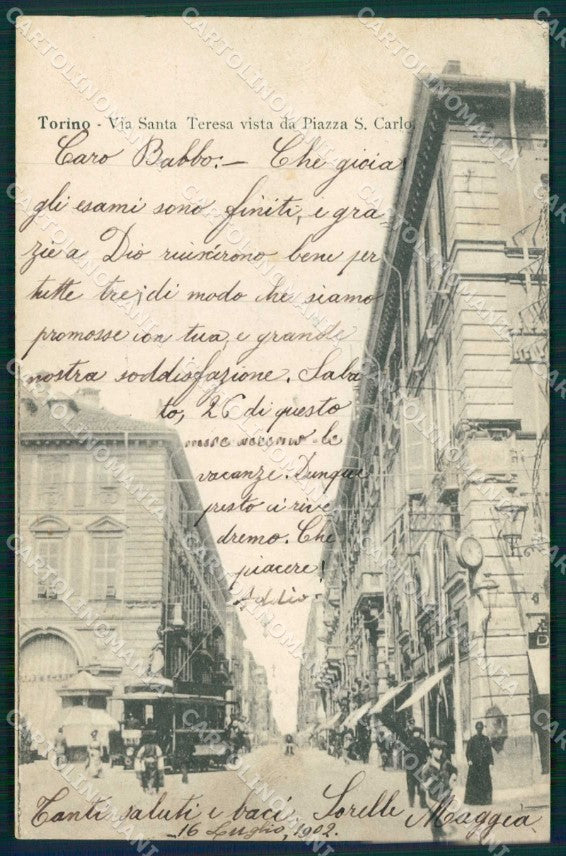 Torino - Via Santa Teresa vista da Piazza S. Carlo
Caro Babbo:- Che gioia
gli esami sono finiti, e gra-
zie a Dio riuscirono bene per
tutte tre; di modo che siamo
promosse con tua e grande
nostra soddisfazione. Saba
to, 26 di questo
mese avremo le
vacanze. Dunque
presto ci rive
dremo. Che
piacere!
Addio.
Tanti saluti e baci Sorelle Maggia
16 Luglio, 1902.
CARTOLINOMANIA